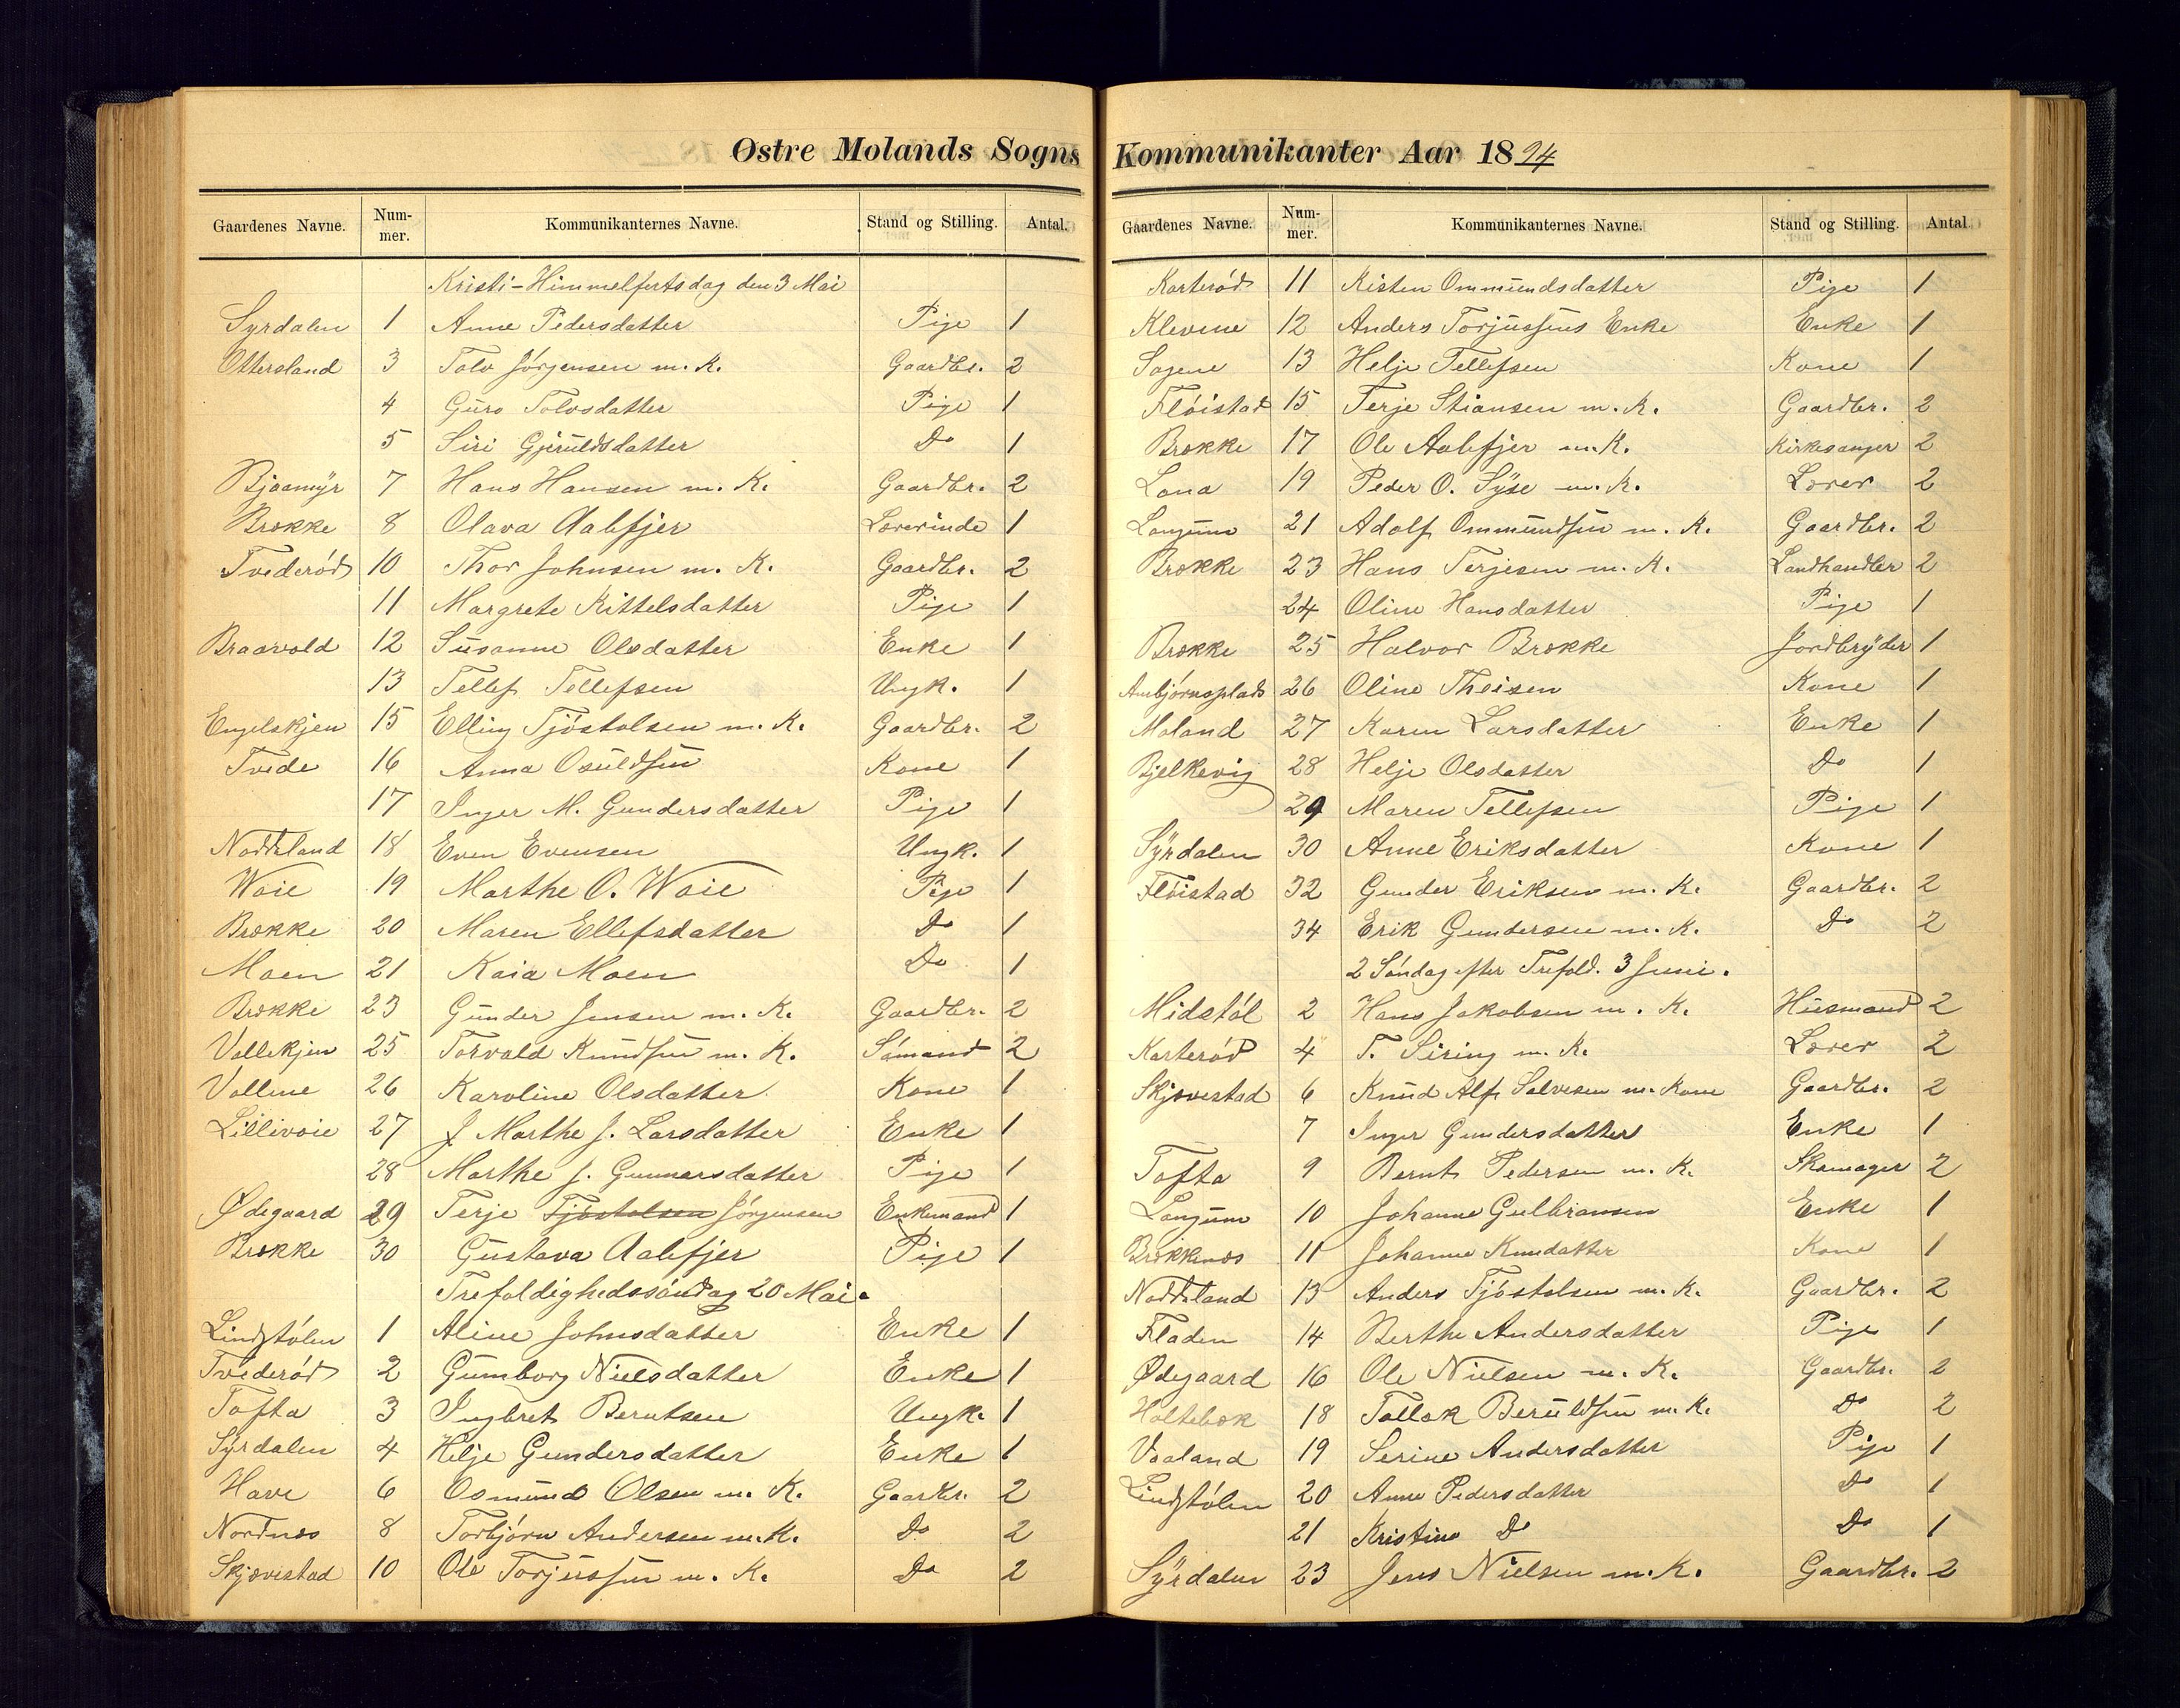 Østre Molands Sogns
Gaardenes Navne. Num-mer. Kommunikanternes Navne. Stand og Stilling. Antal.
Kristi-Himmelfertsdag den 3 Mai
Syrdalen 1 Anne Pedersdatter Pige 1
Ottersland 3 Tolv Jörgensen m. K. Gaardbr. 2
4 Guro Tolvsdatter Pige 1
5 Siri Gjeruldsdatter Do 1
Bjaamyr 7 Hans Hansen m. K. Gaardbr. 2
Brække 8 Olava Aalefjer Lærerinde 1
Tvederød 10 Thor Johnsen m. K. Gaardbr. 2
11 Margrete Kittelsdatter Pige 1
Braarvold 12 Susanne Olsdatter Enke 1
13 Tellef Tellefsen Ungk. 1
Engelskjen 15 Elling Tjöstolsen m. K. Gaardbr. 2
Tvede 16 Anna Osuldsen Kone 1
17 Inger M. Gundersdatter Pige 1
Noddeland 18 Even Evensen Ungk. 1
Woie 19 Marthe O. Woie Pige 1
Brække 20 Maren Ellefsdatter Do 1
Moen 21 Kaia Moen Do 1
Brække 23 Gunder Jensen m. K. Gaardbr. 2
Vallekjen 25 Torvald Knudsen m. K. Sömand 2
Vollene 26 Karoline Olsdatter Kone 1
Lillivoie 27 J Marthe J. Larsdatter Enke 1
28 Marthe J. Gunnarsdatter Pige 1
Ødegaard 29 Terje Tjöstolsen Jörgensen Enkemand 1
Brække 30 Gustava Aalefjer Pige 1
Trefoldighedssöndag 20 Mai.
Lindtölen 1 Aline Johnsdatter Enke 1
Tvederød 2 Gumborg Nielsdatter Enke 1
Tofta 3 Ingbret Berntsen Ungk. 1
Syrdalen 4 Helje Gundersdatter Enke 1
Have 6 Osmund Olsen m. K. Gaarbr. 2
Nordnæs 8 Torbjörn Andersen m.K. Do 2
Skjævestad 10 Ole Torjussen m. K. Do 2
Kommunikanter Aar 1894
Gaardenes Navne. Num-mer. Kommunikanternes Navne. Stand og Stilling. Antal.
Karterød 11 Kisten Ommundsdatter Pige 1
Klevene 12 Anders Torjussens Enke Enke 1
Sagene 13 Helje Tellefsen Kone 1
Flöistad 15 Terje Stiansen m. K. Gaardbr. 2
Brække 17 Ole Aalefjer m.K. Kirkesanger 2
Lona 19 Peder O. Syse m. K. Lærer 2
Langum 21 Adolf Ommundsen m. K. Gaardbr. 2
Brække 23 Hans Terjesen m. K. Landhandler 2
24 Oline Hansdatter Pige 1
Brække 25 Halvor Brække Jordbryder 1
Ambjörnsplads 26 Oline Theisen Kone 1
Moland 27 Karen Larsdatter Enke 1
Bjelkevig 28 Helje Olsdatter Do 1
29 Maren Tellefsen Pige 1
Syrdalen 30 Anne Eriksdatter Kone 1
Flöistad 32 Gunder Eriksen m. K. Gaardbr. 2
34 Erik Gundersen m. K. Do 2
2 Söndag efter Trefold. 3 Juni.
Midstöl 2 Hans Jakobsen m. K. Husmand 2
Karterød 4 T. Siring m. K. Lærer 2
Skjævestad 6 Knud Alf Salvesen m. Kone Gaardbr. 2
7 Inger Gundersdatter Enke 1
Tofta 9 Bernt Pedersen m. K. Skomager 2
Langum 10 Johanne Gulbransen Enke 1
Brækkenæs 11 Johanne Knudatter Kone 1
Noddeland 13 Anders Tjöstolsen m. K. Gaardbr. 2
Fladen 14 Berthe Andersdatter Pige 1
Ødegaard 16 Ole Nielsen m. K. Gaardbr. 2
Holtebæk 18 Tallak Beruldsen m. K. Do 2
Vaaland 19 Serine Andersdatter Pige 1
Lindtölen 20 Anne Pedersdatter Do 1
21 Kristine Do Do 1
Syrdalen 23 Jens Nielsen m. K. Gaardbr. 2